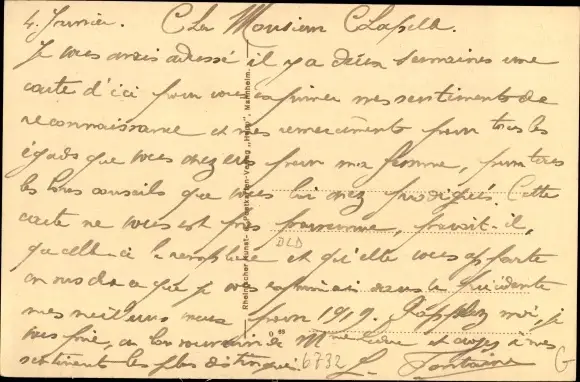 4 Janvier. Cher Monsieur Clapell.
Je vous avais adressé il y a deux semaines une
carte d'ici pour vous exprimer mes sentiments de
reconnaissance et mes remerciements pour tous les
égards que vous avez eus pour ma femme, pour tous
les bons conseils que vous lui avez prodigués. Cette
carte ne vous est pas parvenue, paraît-il,
que celle-ci la remplace et qu'elle vous apporte
en outre ce que je vous exprimais dans la précédente
mes meilleurs vœux pour 1919. Rappelez moi, je
vous prie, au bon souvenir de Mme et croyez à mes
sentiments les plus distingués. Fontaine
DLD
6732
G
Rheinischer Kunst- u. Postkarten-Verlag „Heim", Mannheim.